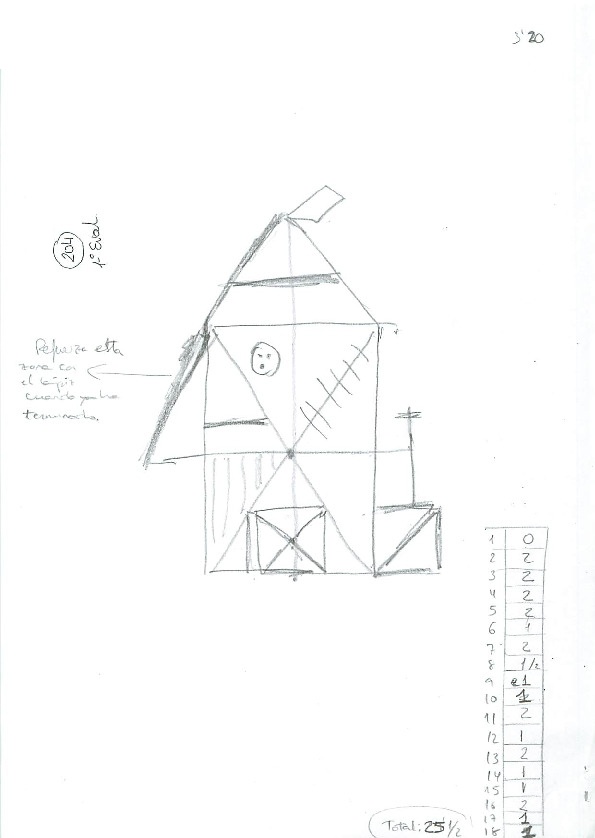 3'20
204
1º Eval
Refuerza esta
zona con
el lápiz
cuando ya ha
terminado.
1 0
2 2
3 2
4 2
5 2
6 1
7 2
8 1/2
9 1
10 1
11 2
12 1
13 2
14 1
15 1
16 2
17 1
18 1
Total: 25 1/2